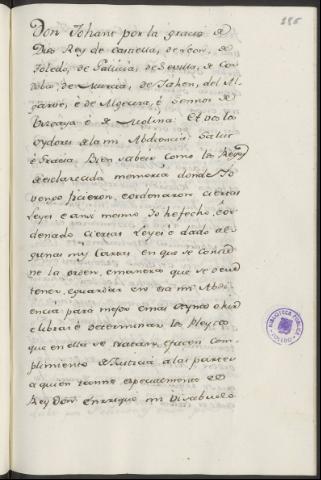 Don Johane por la gracia de
Dios Rey de Castiella, de Leon, de
Toledo, de Galicia, de Sevilla, de Cor
doba, de Murcia, de Jahen, del Al
garve, è de Algecira, è Sennor de
Vizcaya è de Molina: Et vos los
Oydores de la mi Abdiencia Salut
è Gracia. Bien sabeis como los Reyes
de esclarecida memoria donde Yo
vengo ficieron, è ordenaron ciertas
Leyes è ansi mesmo Yo he fecho, è or
denado ciertas Leyes è dado al
gunas mis Cartas en que se contie
ne la orden, è manera que se deve
tener, è guardar en esa mi Abdi
encia para mejor è mas ayna oir
è librar è determinar los Pleytos
que en ella se tratan, è facen com
plimiento de Justicia a las partes
a quien tanne especialmente el
Rey Don Enrique mi Visabuelo
195
BIBLIOTECA PUBLICA
TOLEDO